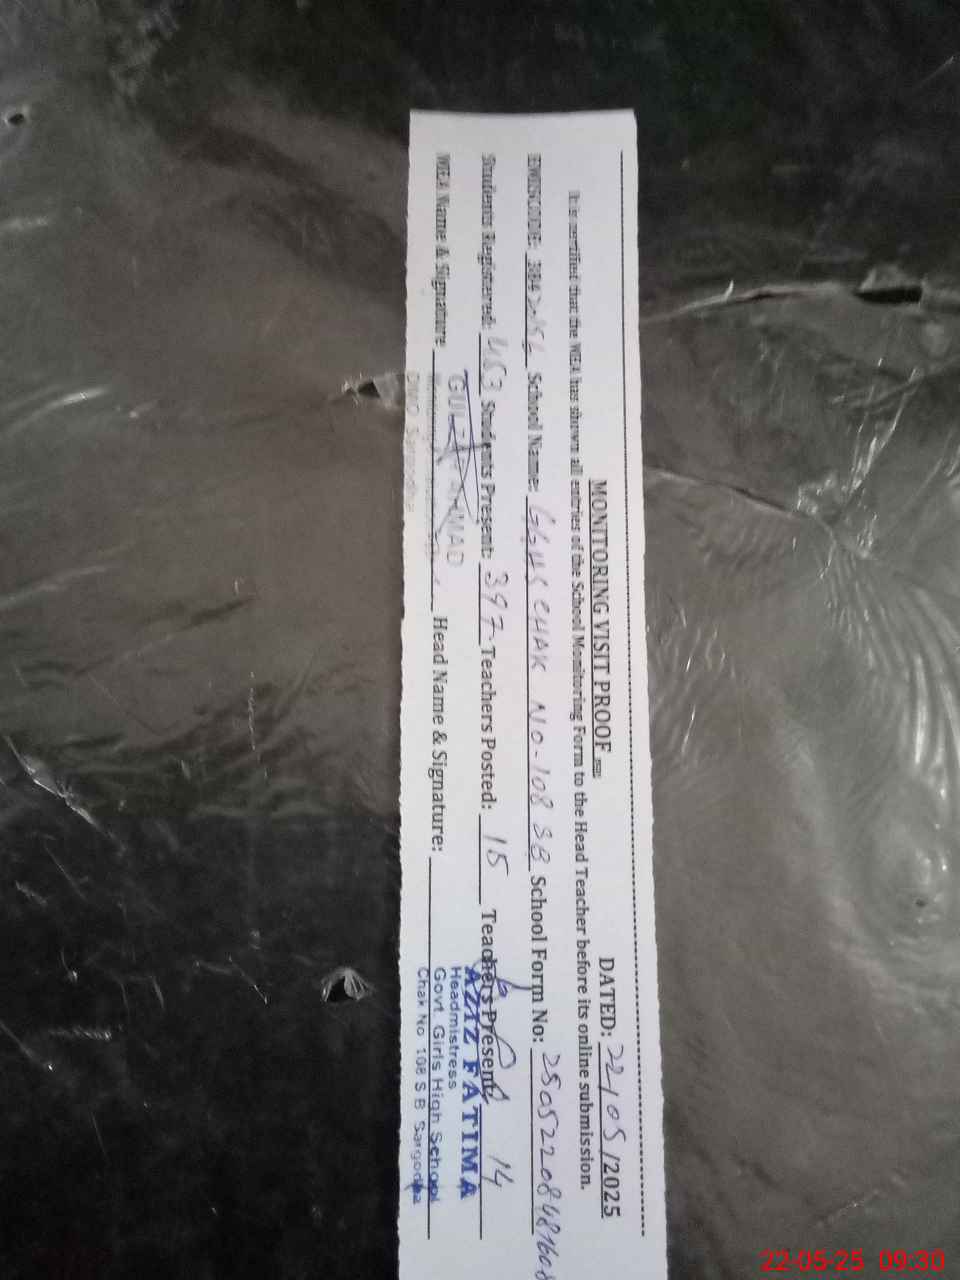 MONITORING VISIT PROOF DATED: 22/05/2025
It is certified that the MEA has shown all entries of the School Monitoring Form to the Head Teacher before its online submission.
EMISCODE: School Name: GGHS CHAK NO-108 SB School Form No: 2505220848160
Students Registered: 453 Students Present: 397 Teachers Posted: 15 Teachers Present: 14
MEA Name & Signature: Head Name & Signature:
AHMAD
DMO Sargodha
AZIZ FATIMA
Headmistress
Govt. Girls High School
Chak No 108 S B Sargodha
22-05-25 09:30